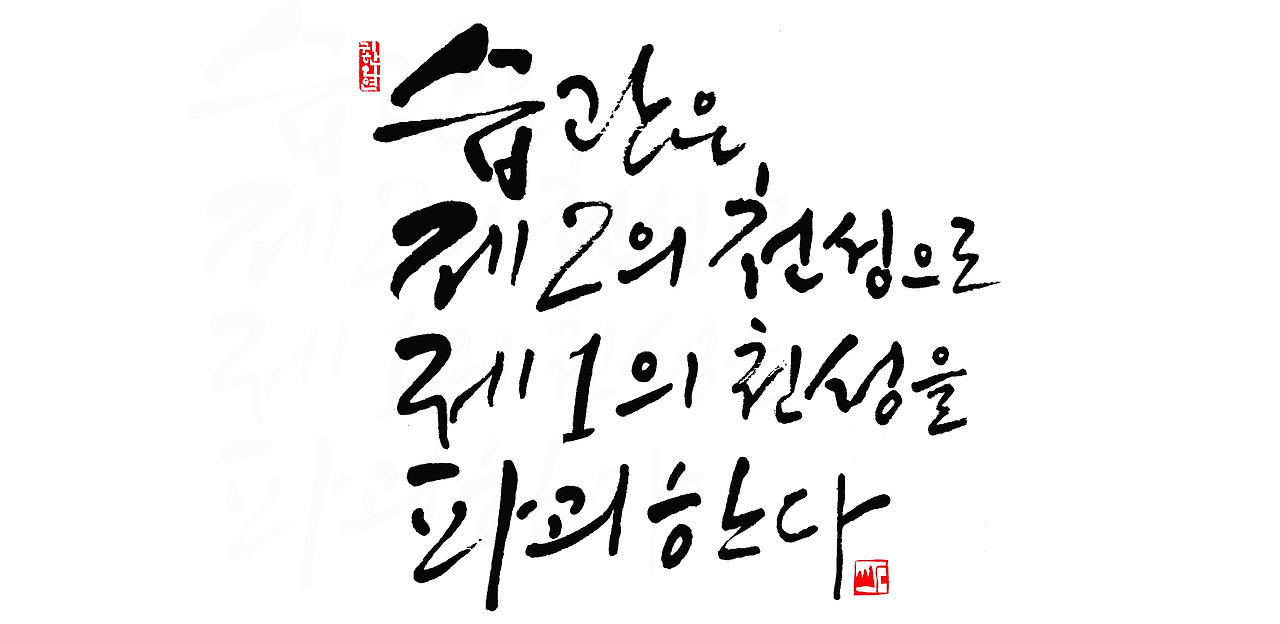 습관은
제2의 천성으로
제1의 천성을
파괴한다